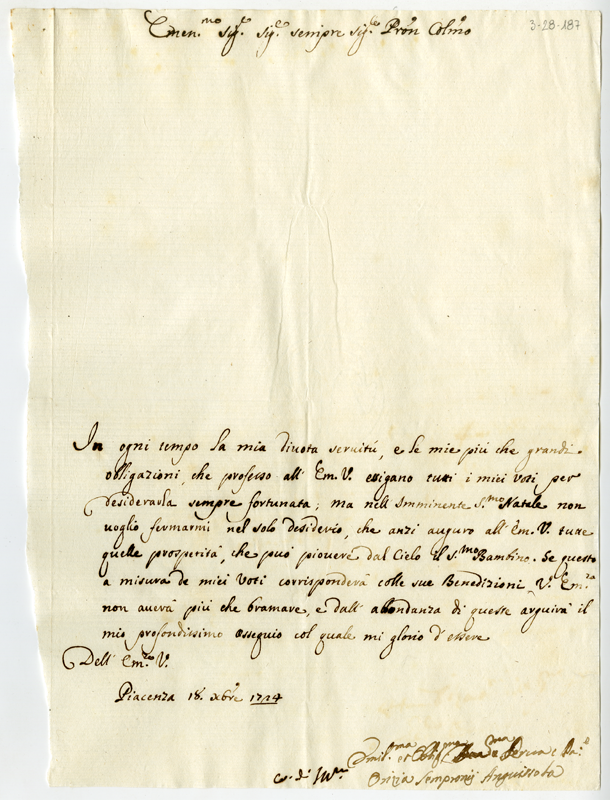 3-28-187
Emen.mo Sig.r Sig.r sempre Sig.r Pron Colmo
In ogni tempo la mia divota servitù, e le mie più che grandi
obligazioni, che professo all' Em. V. esigano tutti i miei voti per
desiderarla sempre fortunata; ma nell' imminente S.mo Natale non
voglio fermarmi nel solo desiderio, che anzi auguro all' Em. V. tutte
quelle prosperità, che può piovere dal Cielo il S.mo Bambino. Se questo
a misura de miei voti corrisponderà colle sue Benedizioni V. Em.za
non averà più che bramare, e dall' abondanza di queste arguirà il
mio profondissimo ossequio col quale mi glorio d' essere
Dell' Em.za V.
Piacenza 18. Xbre 1724
Umil.ma et Obl
Sempronij Anguissola